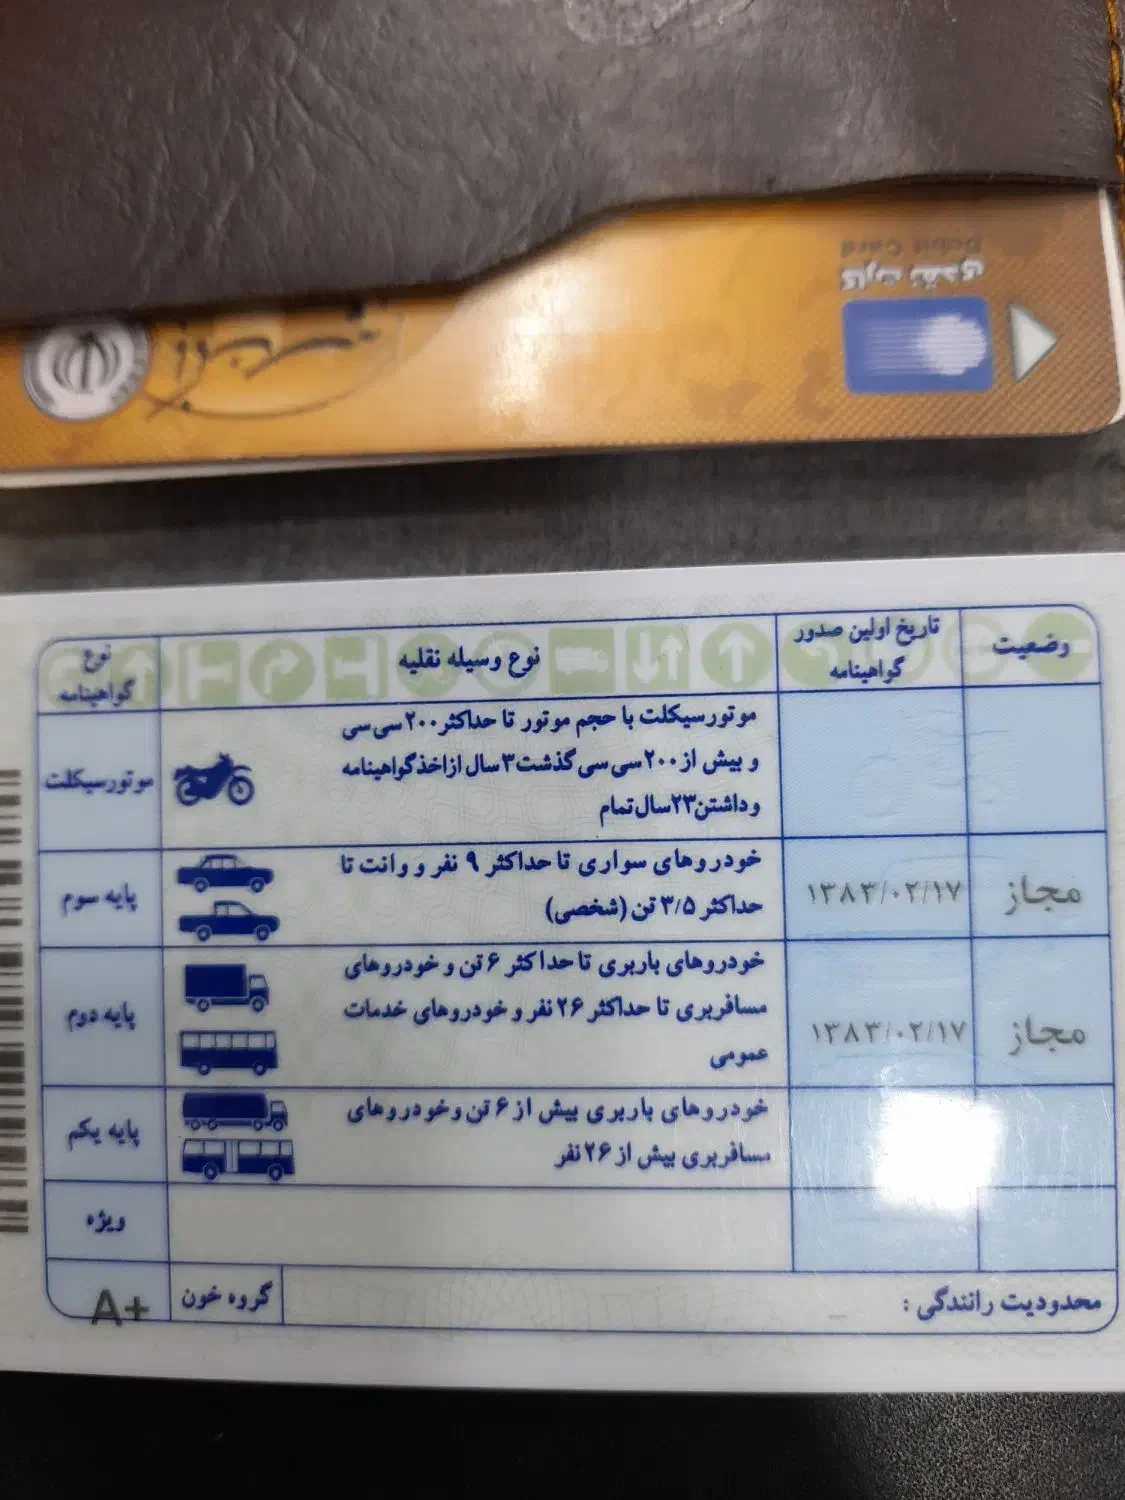 کارت نقدی
Debit Card
وضعیت
تاریخ اولین صدور
گواهینامه
نوع وسیله نقلیه
نوع
گواهینامه
موتورسیکلت با حجم موتور تا حداکثر ۲۰۰ سی سی
و بیش از ۲۰۰ سی سی گذشت ۳ سال از اخذ گواهینامه
و داشتن ۲۳ سال تمام
موتورسیکلت
مجاز
۱۳۸۳/۰۲/۱۷
خودروهای سواری تا حداکثر ۹ نفر و وانت تا
حداکثر ۳/۵ تن (شخصی)
پایه سوم
مجاز
۱۳۸۳/۰۲/۱۷
خودروهای باربری تا حداکثر ۶ تن و خودروهای
مسافربری تا حداکثر ۲۶ نفر و خودروهای خدمات
عمومی
پایه دوم
خودروهای باربری بیش از ۶ تن وخودروهای
مسافربری بیش از ۲۶ نفر
پایه یکم
ویژه
محدودیت رانندگی : –
گروه خون
A+